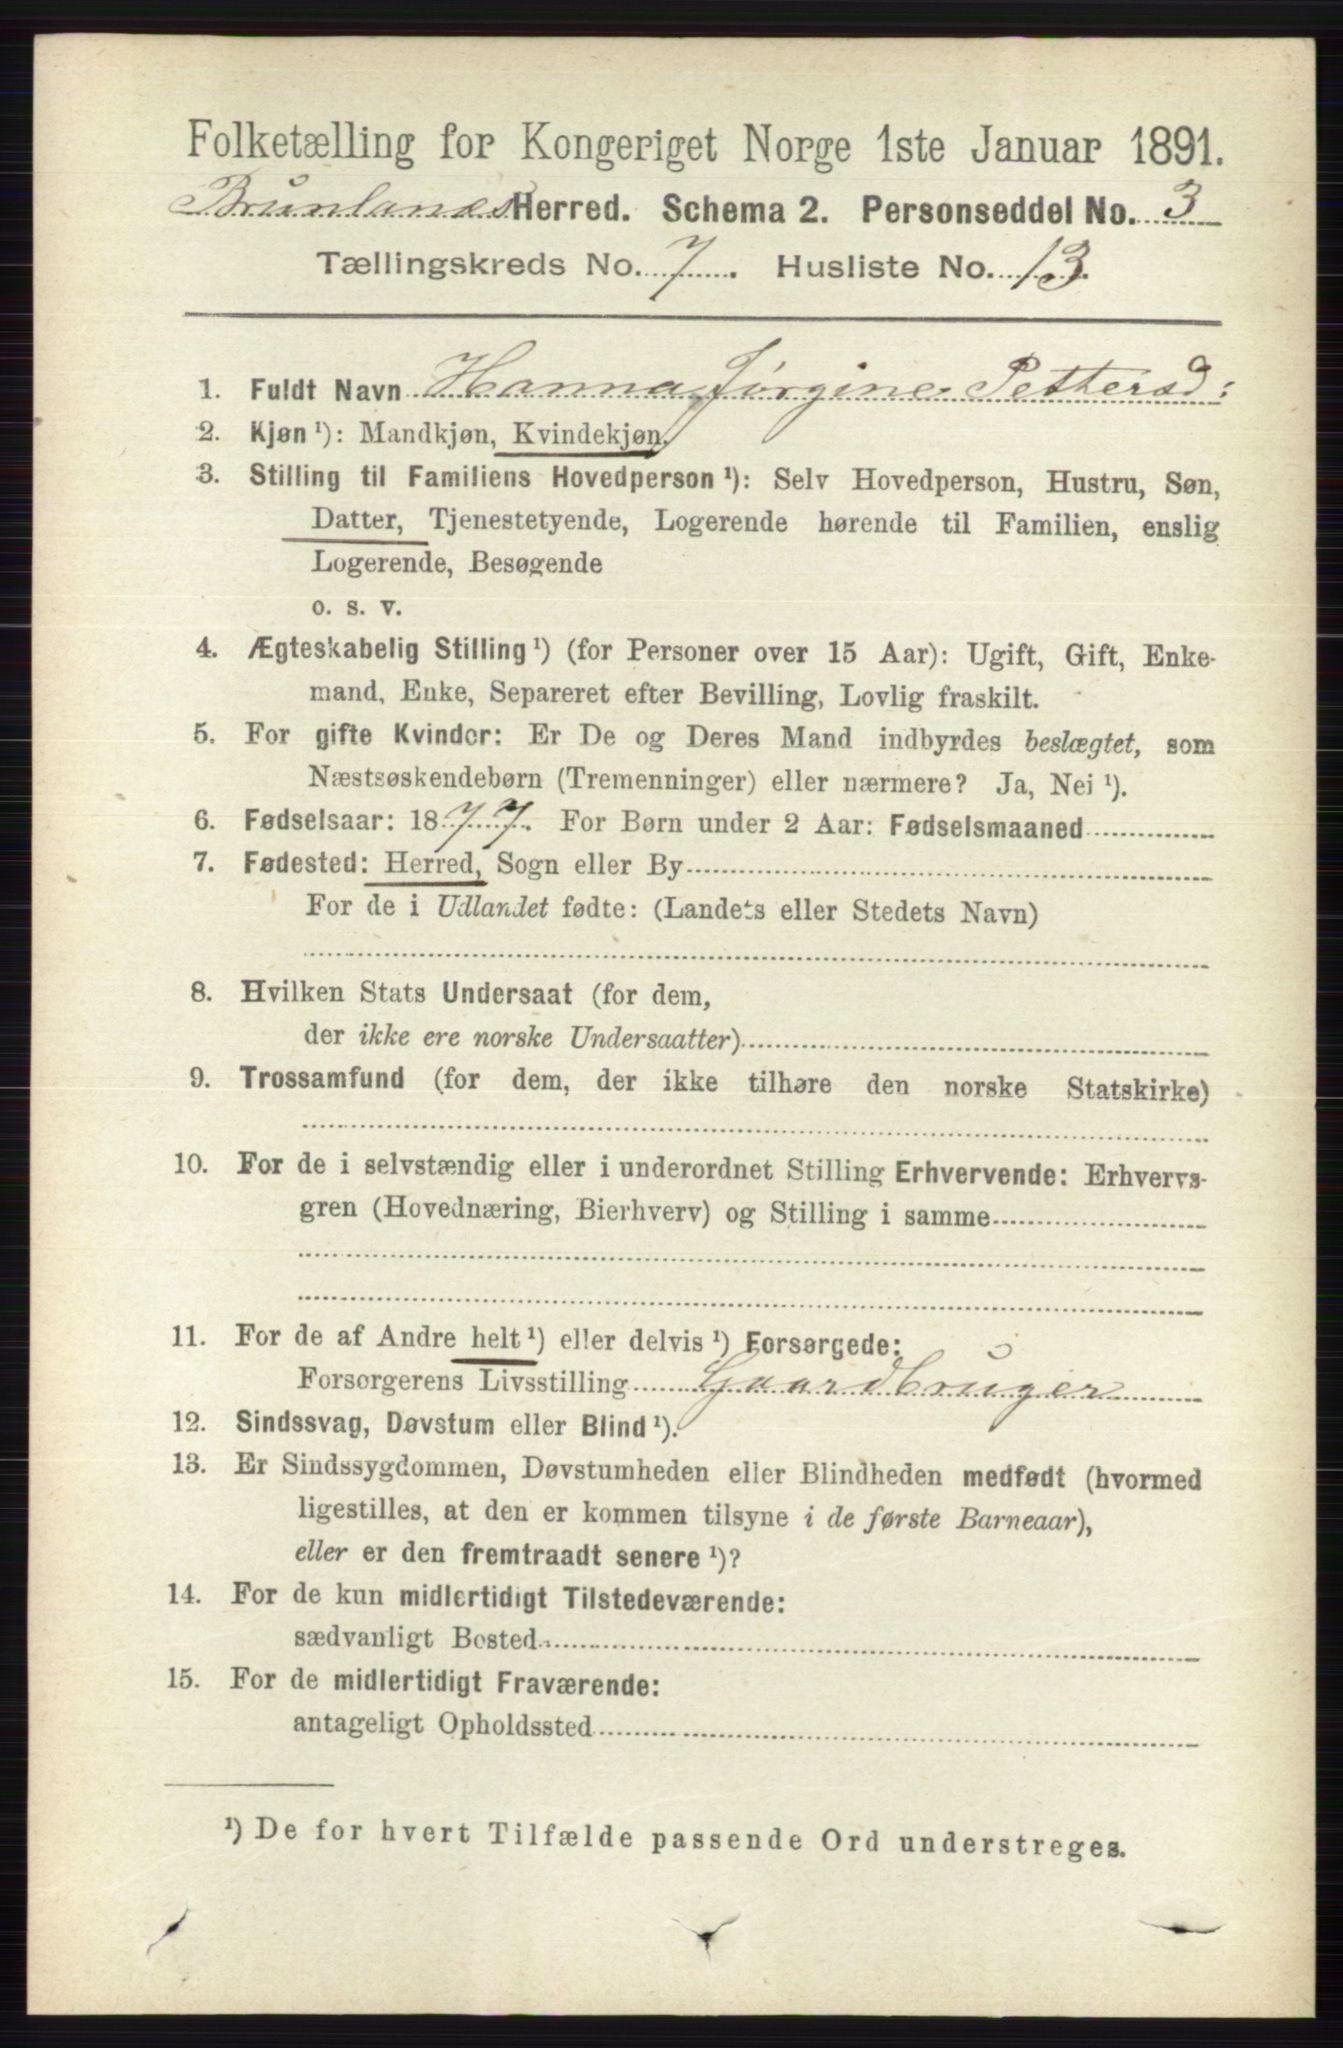 Folketælling for Kongeriget Norge 1ste Januar 1891.
Brunlanes Herred. Schema 2. Personseddel No. 3
Tællingskreds No. 7. Husliste No. 13.
1. Fuldt Navn Hanna Jørgine Pettersd:
2. Kjøn ¹): Mandkjøn, Kvindekjøn.
3. Stilling til Familiens Hovedperson ¹): Selv Hovedperson, Hustru, Søn,
Datter, Tjenestetyende, Logerende hørende til Familien, enslig
Logerende, Besøgende
o. s. v.
4. Ægteskabelig Stilling ¹) (for Personer over 15 Aar): Ugift, Gift, Enke-
mand, Enke, Separeret efter Bevilling, Lovlig fraskilt.
5. For gifte Kvinder: Er De og Deres Mand indbyrdes beslægtet, som
Næstsøskendebørn (Tremenninger) eller nærmere? Ja, Nei ¹).
6. Fødselsaar: 1877. For Børn under 2 Aar: Fødselsmaaned
7. Fødested: Herred, Sogn eller By
For de i Udlandet fødte: (Landets eller Stedets Navn)
8. Hvilken Stats Undersaat (for dem,
der ikke ere norske Undersaatter)
9. Trossamfund (for dem, der ikke tilhøre den norske Statskirke)
10. For de i selvstændig eller i underordnet Stilling Erhvervende: Erhvervs-
gren (Hovednæring, Bierhverv) og Stilling i samme
11. For de af Andre helt ¹) eller delvis ¹) Forsørgede:
Forsørgerens Livsstilling Gaardbruger
12. Sindssvag, Døvstum eller Blind ¹).
13. Er Sindssygdommen, Døvstumheden eller Blindheden medfødt (hvormed
ligestilles, at den er kommen tilsyne i de første Barneaar),
eller er den fremtraadt senere ¹)?
14. For de kun midlertidigt Tilstedeværende:
sædvanligt Bosted
15. For de midlertidigt Fraværende:
antageligt Opholdssted
¹) De for hvert Tilfælde passende Ord understreges.